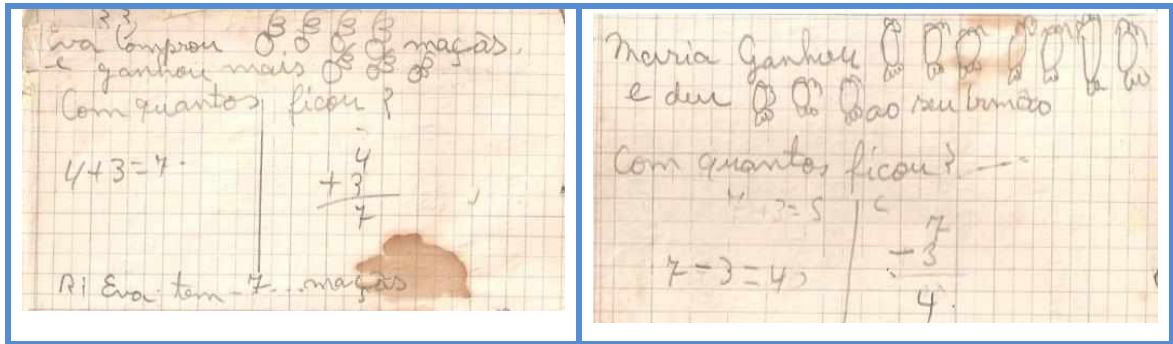 Eva Comprou maçãs.
e ganhou mais
Com quantos ficou?
4+3=7.
4
+3
7
R: Eva tem 7 maçãs
Maria Ganhou
e deu ao seu irmão
Com quantos ficou?
7-3=4
7
-3
4.